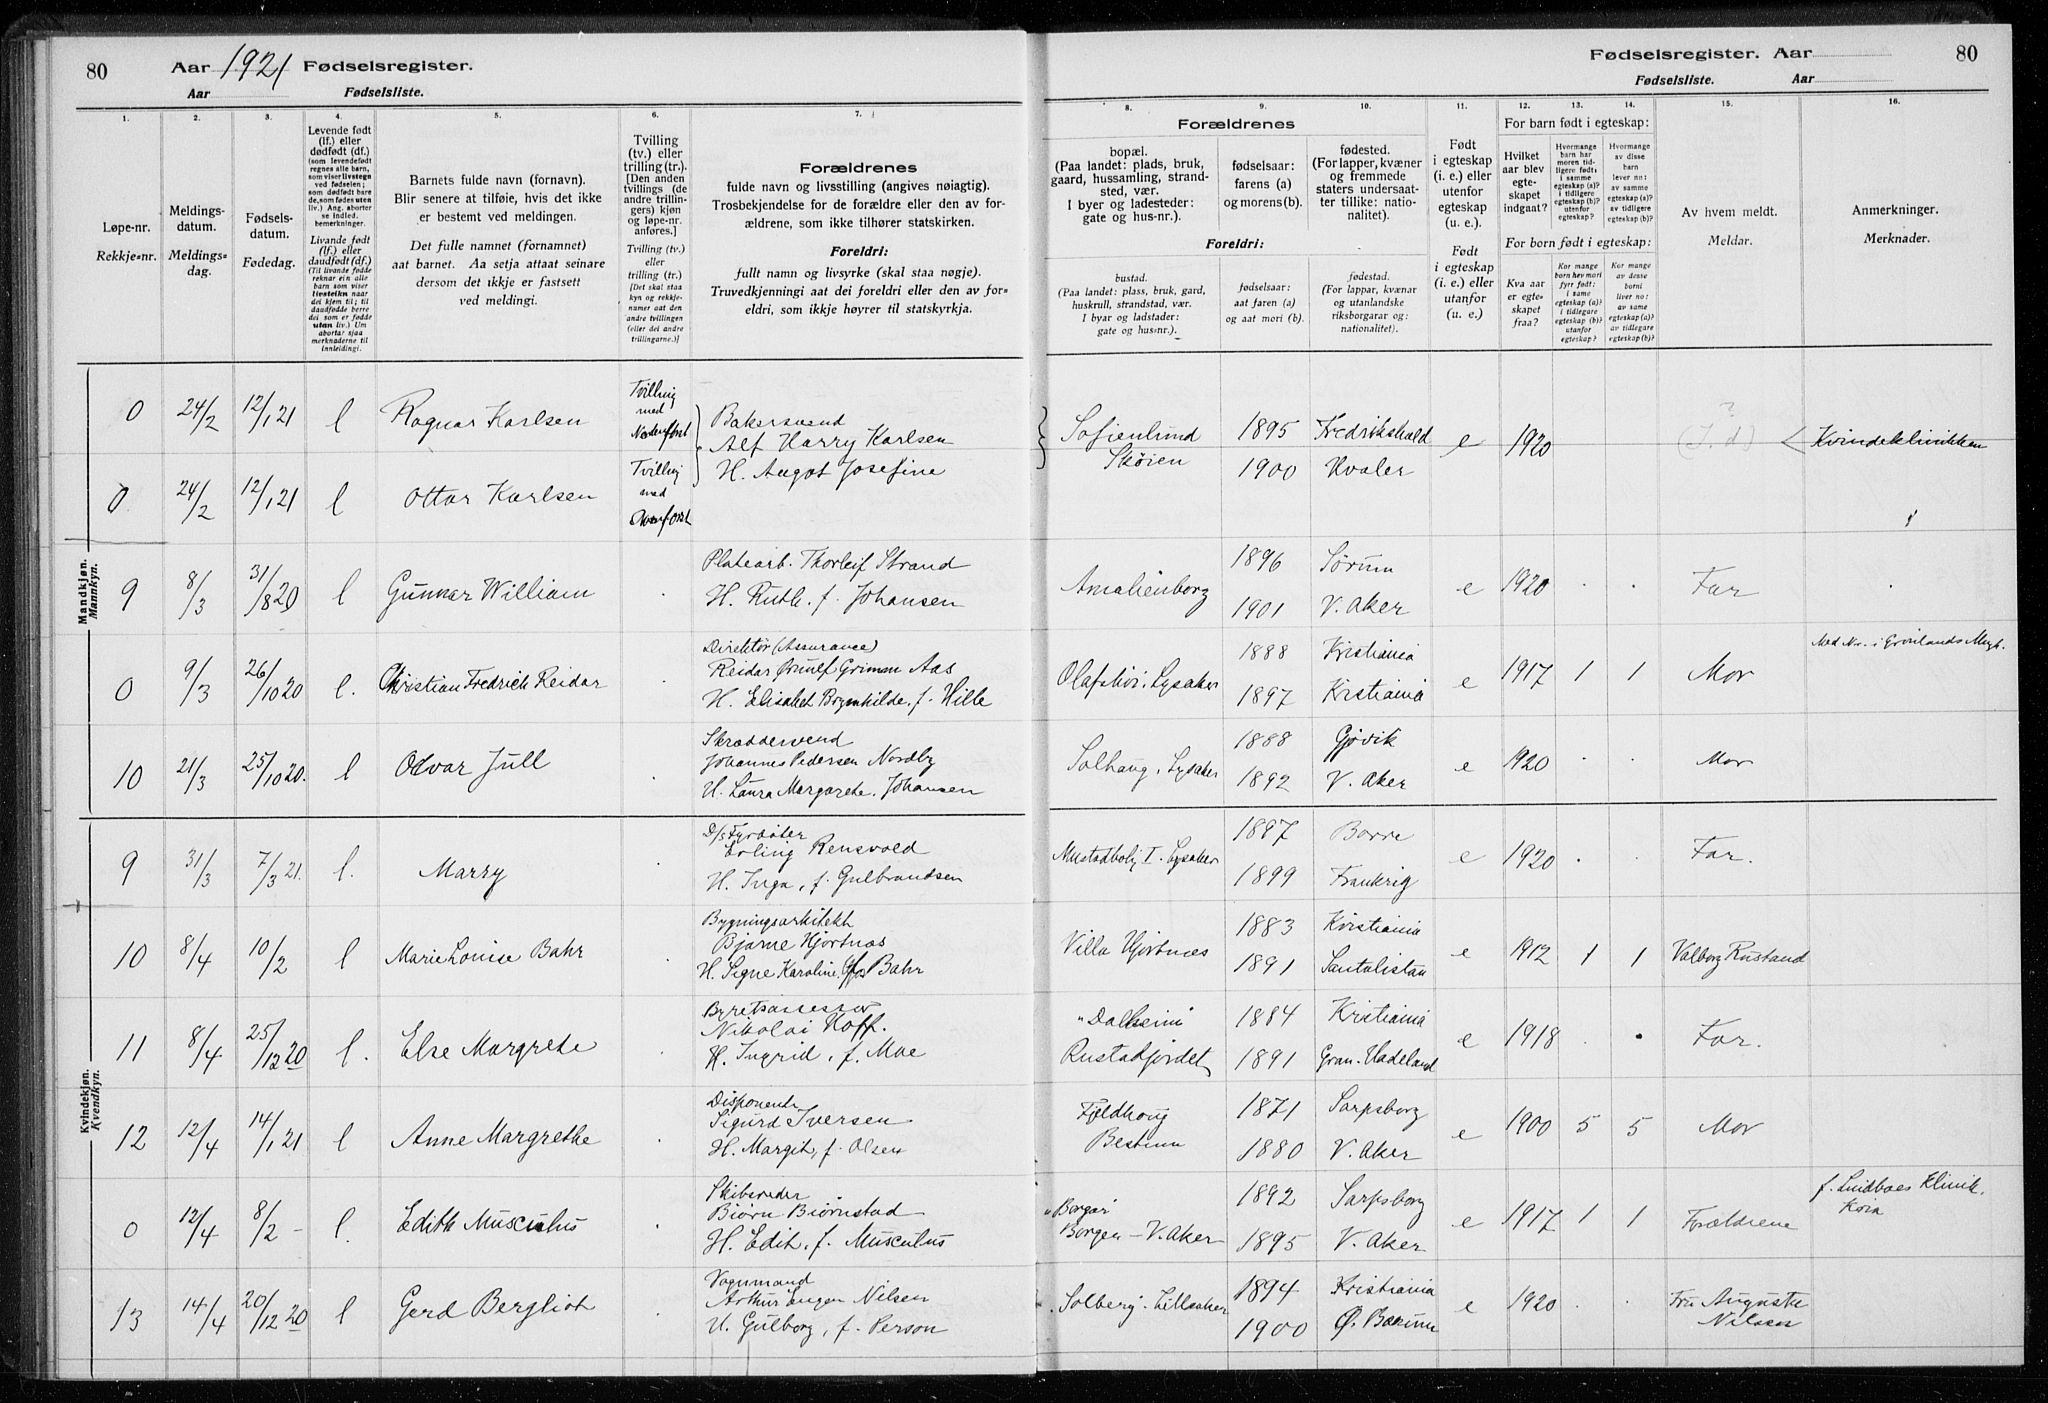 80 Aar 1921 Fødselsregister.
Aar Fødselsliste.
Fødselsregister. Aar 80
Fødselsliste. Aar
1. 2. 3. 4. 5. 6. 7.
8. 9. 10. 11. 12. 13. 14. 15. 16.
Løpe-nr.
Rekkje=nr.
Meldings-
datum.
Meldings=
dag.
Fødsels-
datum.
Fødedag.
Levende født
(lf.) eller
dødfødt (df.)
(som levendefødt
regnes alle barn,
som viser livstegn
ved fødselen;
som dødfødt bare
de, som fødes uten
liv.) Ang. aborter
se indled.
bemerkninger.
Livande født
(lf.) eller
daudfødt (df.)
(Til livande fødde
reknar ein alle
barn som viser
livsteikn naar
dei kjem til; til
daudfødde berre
dei som er fødde
utan liv.) Um
abortar sjaa
merknaderne til
innleidingi.
Barnets fulde navn (fornavn).
Blir senere at tilføie, hvis det ikke
er bestemt ved meldingen.
Det fulle namnet (fornamnet)
aat barnet. Aa setja attaat seinare
dersom det ikkje er fastsett
ved meldingi.
Tvilling
(tv.) eller
trilling (tr.).
[Den anden
tvillings (de
andre trillin-
gers) kjøn
og løpe-nr.
anføres.]
Tvilling (tv.)
eller
trilling (tr.)
[Det skal staa
kyn og rekkje-
numer aat den
andre tvillingen
(eller dei andre
trillingarne.)]
Forældrenes
fulde navn og livsstilling (angives nøiagtig).
Trosbekjendelse for de forældre eller den av for-
ældrene, som ikke tilhører statskirken.
Foreldri:
fullt namn og livsyrke (skal staa nøgje).
Truvedkjenningi aat dei foreldri eller den av for-
eldri, som ikkje høyrer til statskyrkja.
Forældrenes
bopæl.
(Paa landet: plads, bruk,
gaard, hussamling, strand-
sted, vær.
I byer og ladesteder:
gate og hus-nr.).
fødselsaar:
farens (a)
og morens (b).
fødested.
(For lapper, kvæner
og fremmede
staters undersaat-
ter tillike: natio-
nalitet).
Foreldri:
bustad.
(Paa landet: plass, bruk, gard,
huskrull, strandstad, vær.
I byar og ladstader:
gate og hus=nr.).
fødselsaar:
aat faren (a)
og aat mori (b).
fødestad.
(For lappar, kvænar
og utanlandske
riksborgarar og:
nationalitet).
Født
i egteskap
(i. e.) eller
utenfor
egteskap
(u. e.).
Født
i egteskap
(i. e.) eller
utanfor
(u. e.)
For barn født i egteskap:
Hvilket
aar blev
egte-
skapet
indgaat?
Hvormange
barn har
moren tid-
ligere født:
i samme
egteskap (a)?
i tidligere
egteskap (b)?
utenfor
egteskap?
Hvormange
av disse
barn
lever nu:
av samme
egteskap (a)?
av tidligere
egteskap (b)?
For born født i egteskap:
Kva aar
er egte=
skapet
fraa?
Kor mange
born hev mori
fyrr født:
i same
egteskap (a)?
i tidlegare
egteskap (b)?
utanfor
egteskap?
Kor mange
av desse
borni
liver no:
av same
egteskap (a)?
av tidlegare
egteskap (b)?
Av hvem meldt.
Meldar.
Anmerkninger.
Merknader.
Mandkjøn.
Mannkyn.
0 24/2 12/1 21 l Ragnar Karlsen Tvilling med Nedenført
Bakersvend
Alf Harry Karlsen
H. Aagot Josefine
Sofienlund
Skøien
1895 Fredrikshald
1900 Hvaler
e 1920 (J. d) ? Kvindeklinikken
0 24/2 12/1 21 l Ottar Karlsen Tvilling med Ovenførst
9 8/3 31/8 20 l Gunnar William
Platearb. Thorleif Strand
H. Ruth f. Johansen
Amalienborg
1896 Sørum
1901 V. Aker
e 1920 . . Far
0 9/3 26/10 20 l. Christian Fredrich Reidar
Direktør (Assurance)
Reidar Ørnulf Grimsn Aas
H. Elisabet Brynhilde, f. Hille
Olafshøi, Lysaker
1888 Kristiania
1897 Kristiania
e 1917 1 1 Mor Med No. i Grønlands Mgh.
10 21/3 25/10 20. l Odvar Jull
Skræddersvend
Johannes Pedersen Nordby
H. Laura Margarethe, Johansen
Solhaug, Lysaker
1888 Gjøvik
1892 V. Aker
e 1920 . . Mor
Kvindekjøn.
Kvendkyn.
9 31/3 7/3 21. l. Marry
D/s Fyrbøter
Erling Rensvold
H. Inga, f. Gulbrandsen
Mustadbolig I. Lysaker
1887 Borre
1899 Frankrig
e 1920 . . Far.
10 8/4 10/2 l Marie Louise Bahr
Bygningsarkitekt
Bjarne Hjortnæs
H. Signe Karoline, f. Bahr
Villa Hjortnes
1883 Kristiania
1891 Santalistan
e 1912 1 1 Valborg Rustand
11 8/4 25/12 20 l. Else Margrete
Byretsassessor
Nikolai Hoff.
H. Ingrid, f. Moe
"Dalheim"
Rustadfjordet
1884 Kristiania
1891 Gran. Hadeland
e 1918 . . Far.
12 12/4 14/1 21 l Anne Margrethe
Disponent
Sigurd Iversen
H. Margit, f. Olsen
Fjeldhoug
Bestum
1871 Sarpsborg
1880 V. Aker
e 1900 5 5 Mor
0 12/4 8/2 - l. Edith Musculus
Skibsreder
Biørn Biørnstad
H. Edit, f. Musculus
"Borgar"
Borgen - V. Aker
1892 Sarpsborg
1895 V. Aker
e 1917 1 1 Forældrene
f. Lindboes Klinik.
Kria
13 14/4 20/12 20 l Gerd Bergliot
Vognmand
Arthur Eugen Nilsen
H. Gulborg, f. Person
Solberg. Lillaker
1894 Kristiania
1900 Ø. Bærum
e 1920 . . Fru Auguste
Nilsen